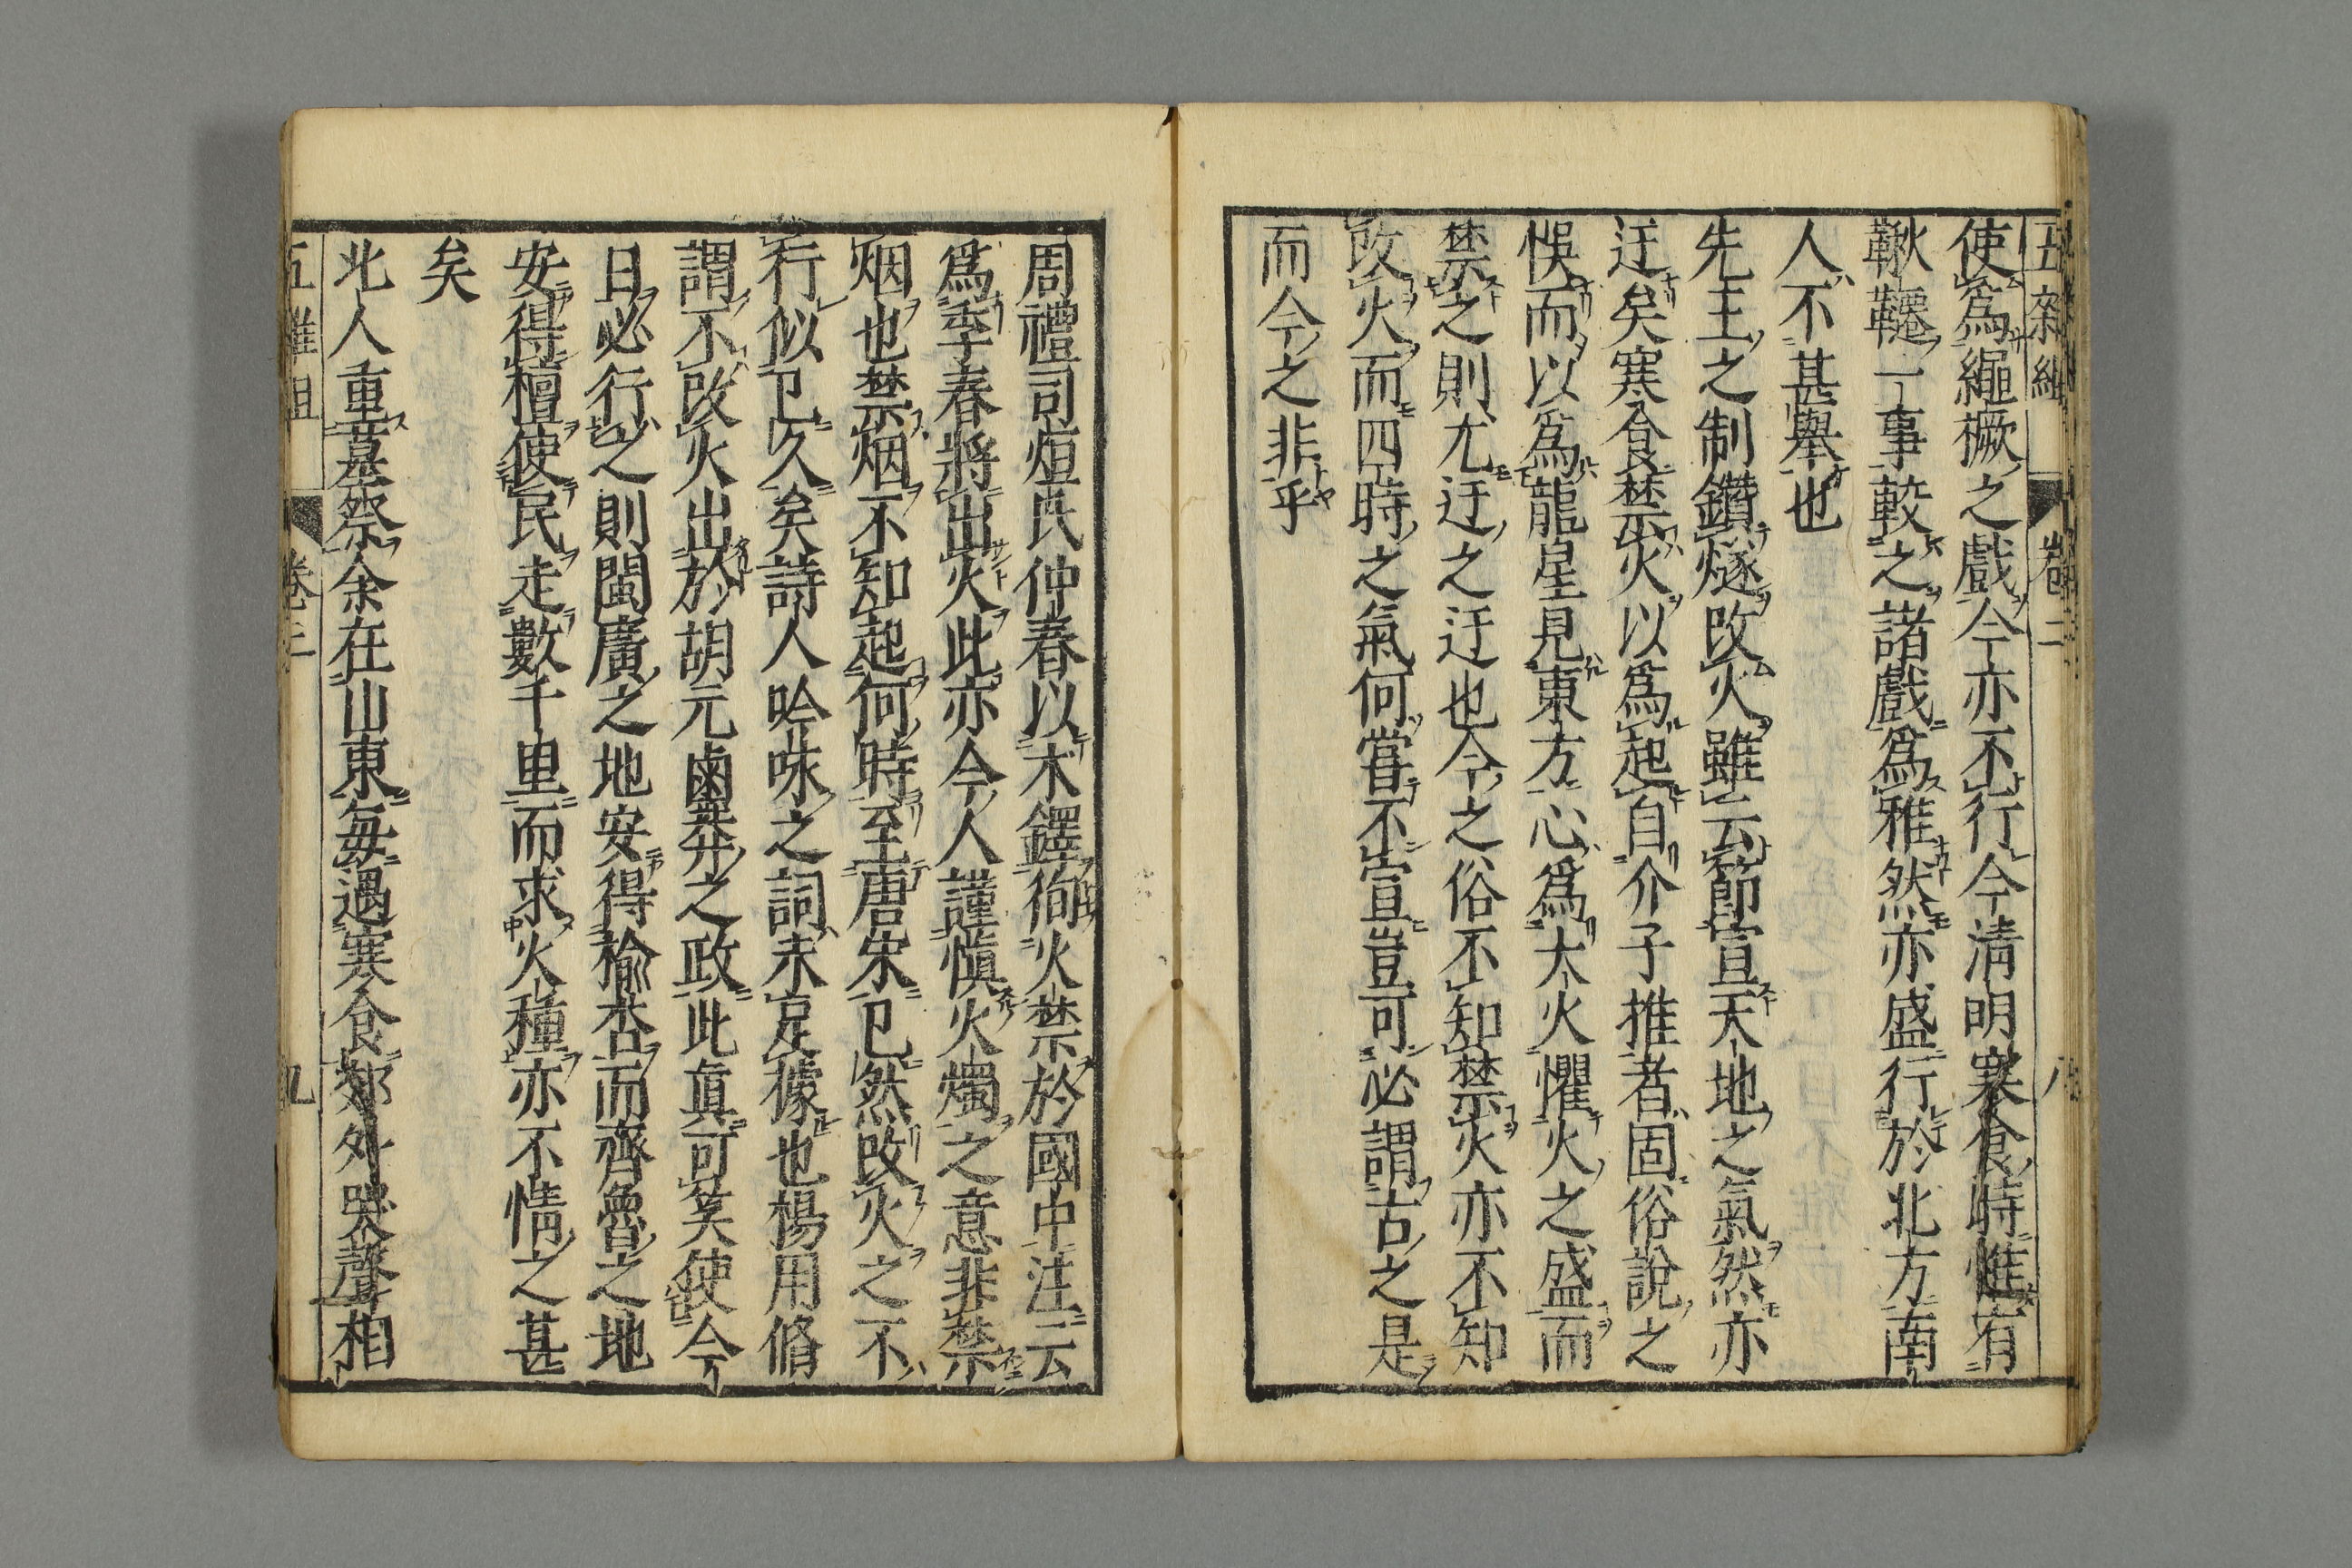 五雜組 卷二 八
使爲繩橛之戲今亦不行今清明寒食時惟有
鞦韆一事較之諸戲爲雅然亦盛行於北方南
人不甚舉也
先王之制鑽燧改火雖云節宣天地之氣然亦
迂矣寒食禁火以爲起自介子推者固俗說之
悞而以爲龍星見東方心爲大火懼火之盛而
禁之則尤迂之迂也今之俗不知禁火亦不知
改火而四時之氣何嘗不宣豈可必謂古之是
而今之非乎
周禮司烜氏仲春以木鐸徇火禁於國中注云
爲季春將出火此亦今人謹愼火燭之意非禁
烟也禁烟不知起何時至唐宋已然改火之不
行似已久矣詩人吟咏之詞未足據也楊用脩
謂不改火出於胡元鹵莽之政此眞可笑使今
日必行之則閩廣之地安得楡杏而齊魯之地
安得檀使民走數千里而求火種亦不情之甚
矣
北人重墓祭余在山東每遇寒食郊外哭聲相
五雜組 卷二 九